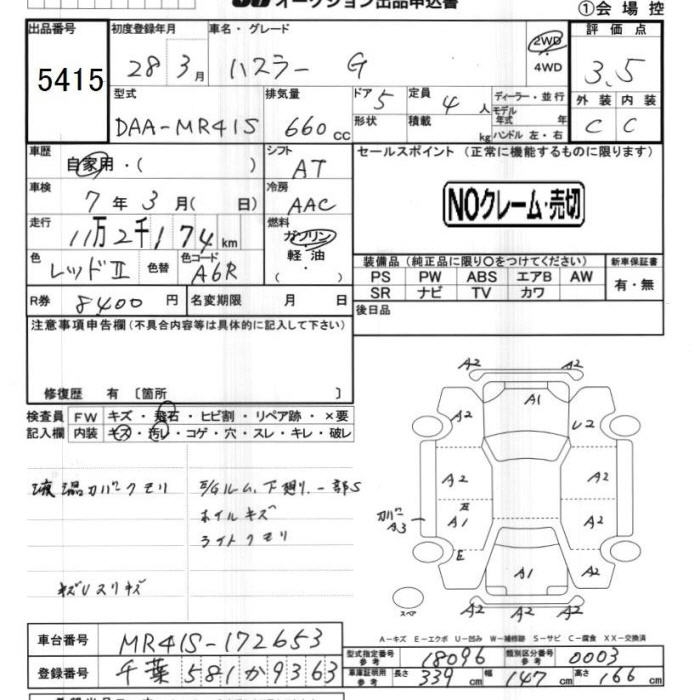 オークション出品申込書
①会場控
出品番号
5415
初度登録年月
28年3月
車名・グレード
ハスラー G
2WD
4WD
評価点
3.5
型式
DAA-MR41S
排気量
660cc
ドア 5
形状
定員 4人
積載 kg
ディーラー・並行
モデル年式 年
ハンドル 左・右
外装 内装
C C
車歴
自家用・( )
シフト
AT
車検
7年3月( 日)
冷房
AAC
走行
11万2千174km
燃料
ガソリン
軽油
( )
色
レッドⅡ
色替
色コード
A6R
R券
8400円
名変期限 月 日
セールスポイント (正常に機能するものに限ります)
NOクレーム・売切
装備品 (純正品に限り○をつけてください)
新車保証書
PS PW ABS エアB AW
有・無
SR ナビ TV カワ
後日品
注意事項申告欄(不具合内容等は具体的に記入して下さい)
修復歴 有 〔箇所 〕
検査員 FW キズ・飛石・ヒビ割・リペア跡・×要
記入欄 内装 キズ・汚レ・コゲ・穴・スレ・キレ・破レ
液晶カバークモリ
E/Gルム、下廻り、一部S
ホイルキズ
ライトクモリ
キズUスリキズ
A2 A2
A1
A2 U2
A2 A2
カバーA3
A1 A2
E
A1
A2 A2
A2 A2
スペア
A-キズ E-エクボ U-凹み W-補修跡 S-サビ C-腐食 XX-交換済
車台番号
MR41S-172653
登録番号
千葉 581 か 9363
型式指定番号 参考
18096
類別区分番号 参考
0003
車庫証明用 参考
長さ 339 cm
幅 147 cm
高さ 166 cm